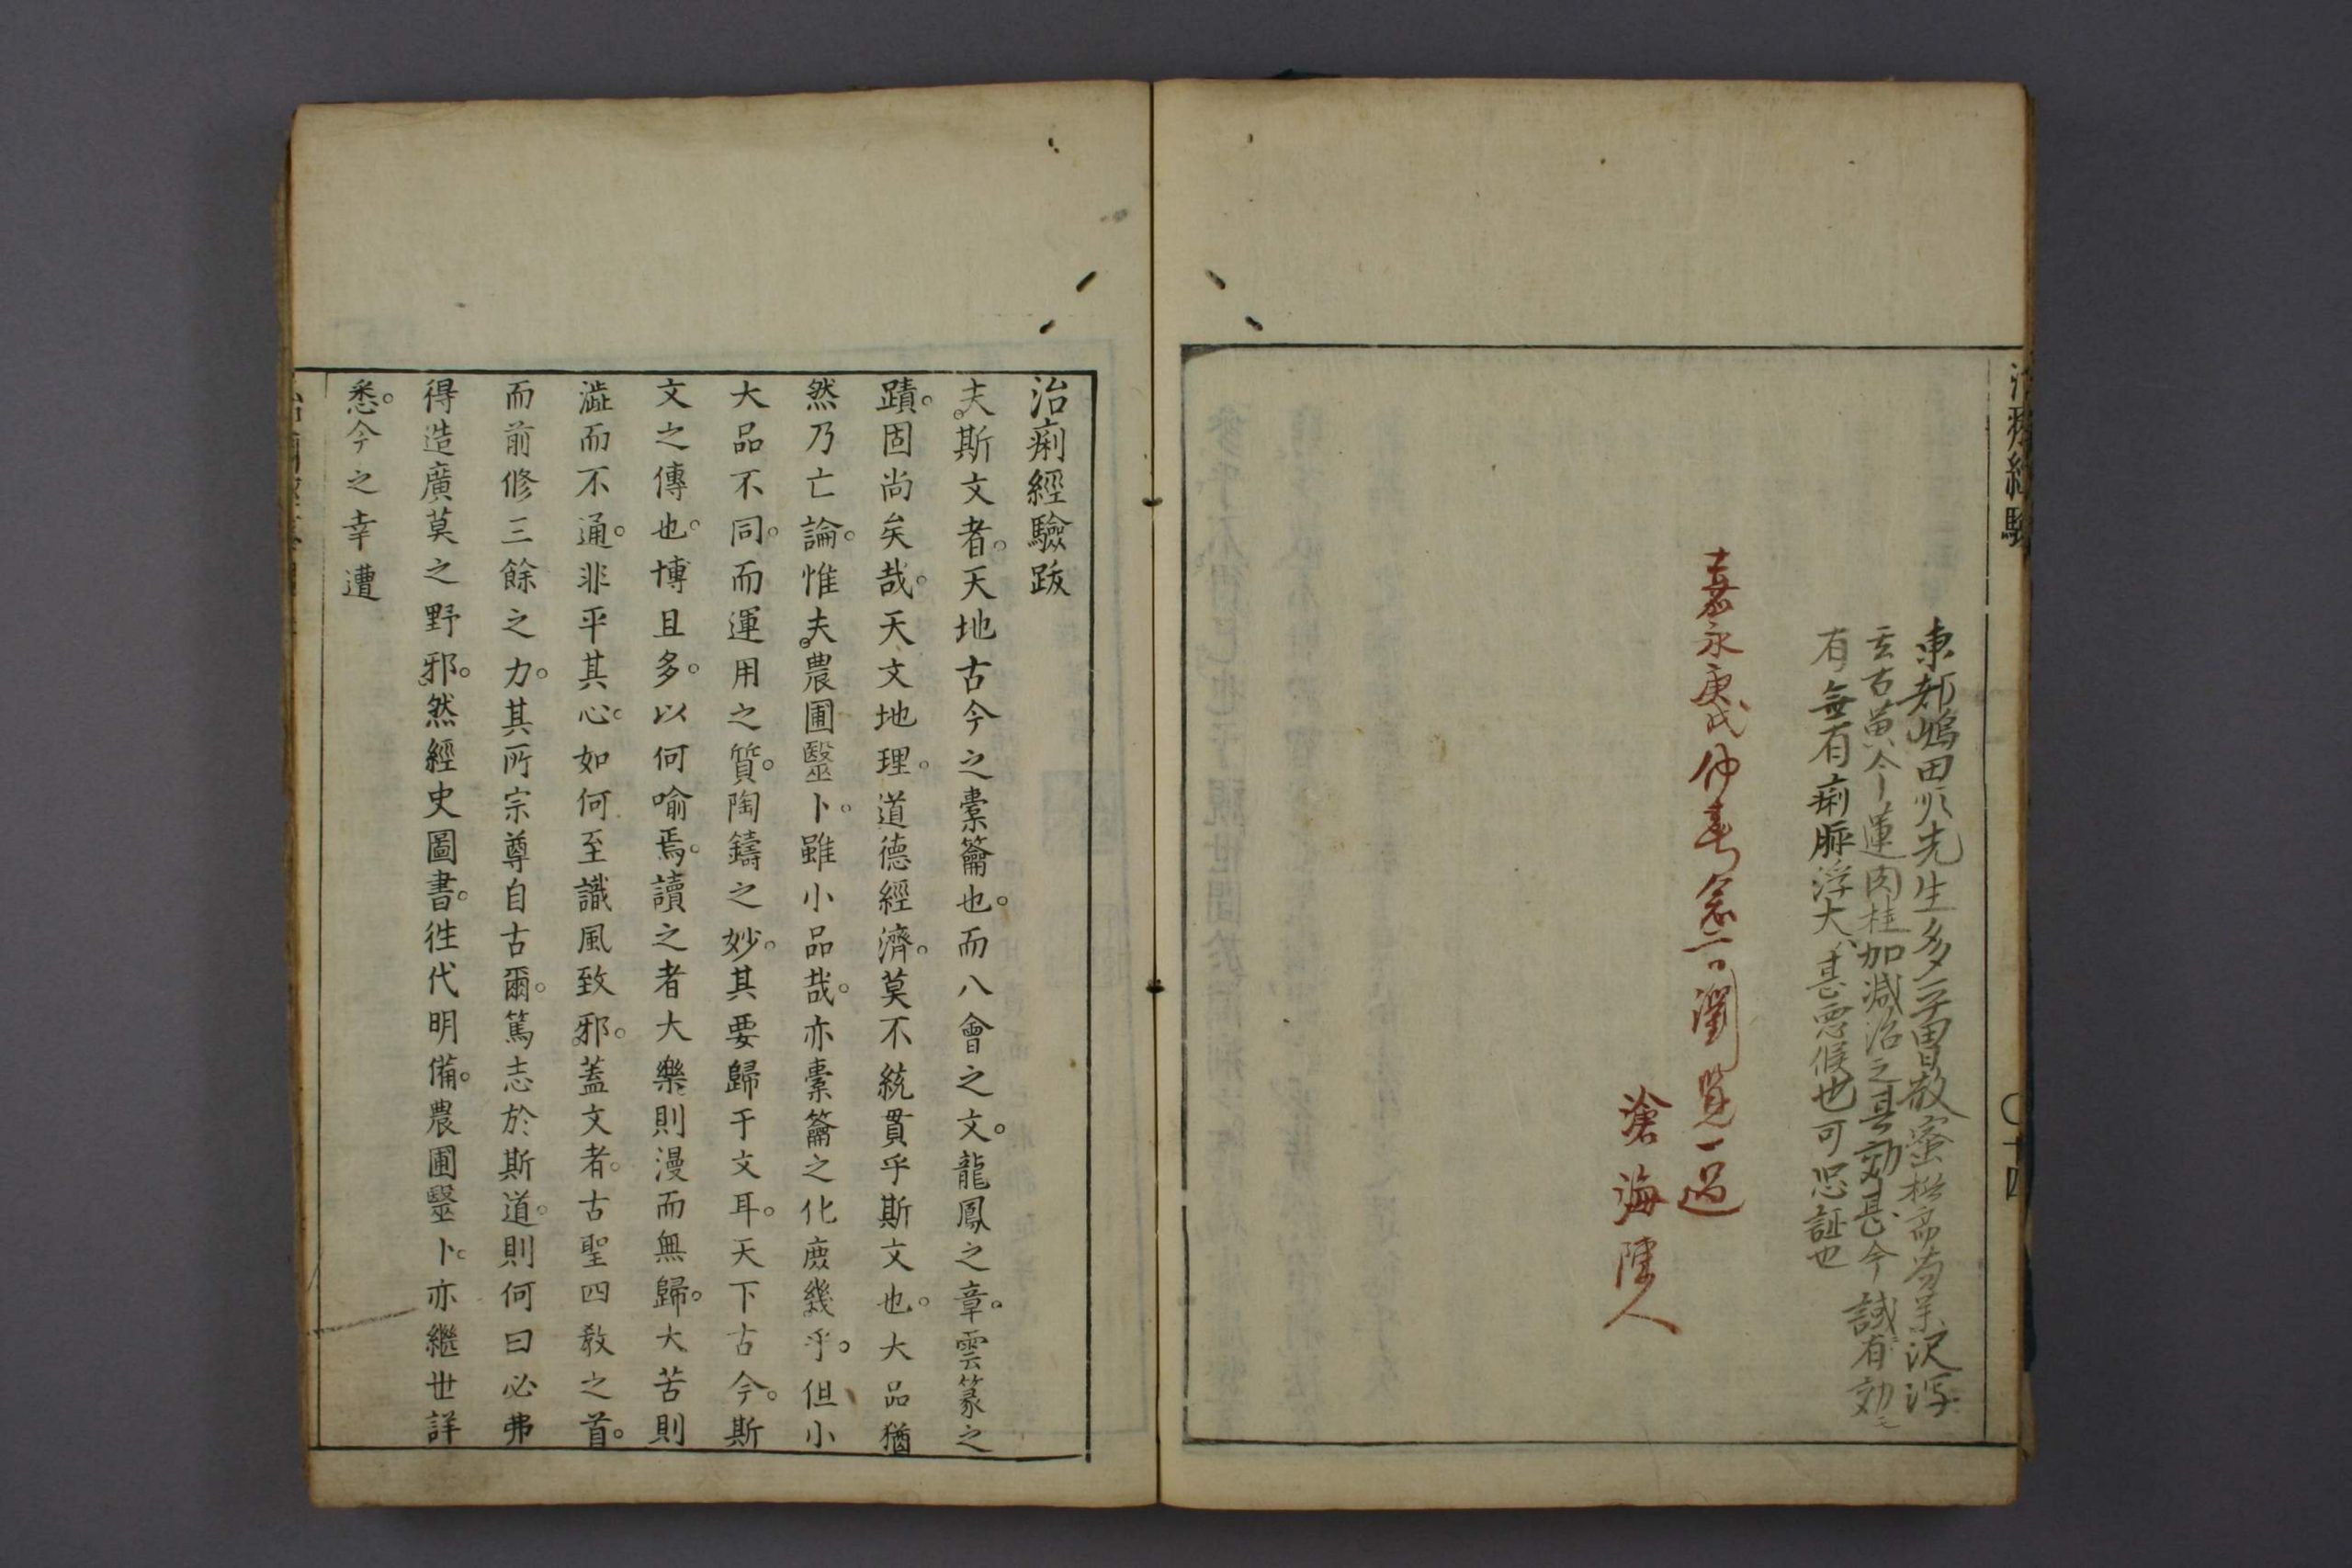 治痢經驗
十四
東都嶋田順先生多
有無有痢脈浮大甚悪候也可恐証也
嘉永庚戌仲春念二日瀏覧一過
滄海陳人
治痢經驗跋
夫斯文者。天地古今之橐籥也。而八會之文。龍鳳之章。雲篆之
蹟。固尚矣哉。天文地理。道德經濟。莫不統貫乎斯文也。大品猶
然乃亡論。惟夫農圃毉卜。雖小品哉。亦橐籥之化庶幾乎。但小
大品不同。而運用之質。陶鑄之妙。其要歸于文耳。天下古今。斯
文之傳也。博且多。以何喻焉。讀之者大樂則漫而無歸。大苦則
澁而不通。非平其心。如何至識風致邪。蓋文者。古聖四教之首。
而前修三餘之力。其所宗尊自古爾。篤志於斯道。則何曰必弗
得造廣莫之野邪。然經史圖書。往代明備。農圃毉卜。亦繼世詳
悉。今之幸遭